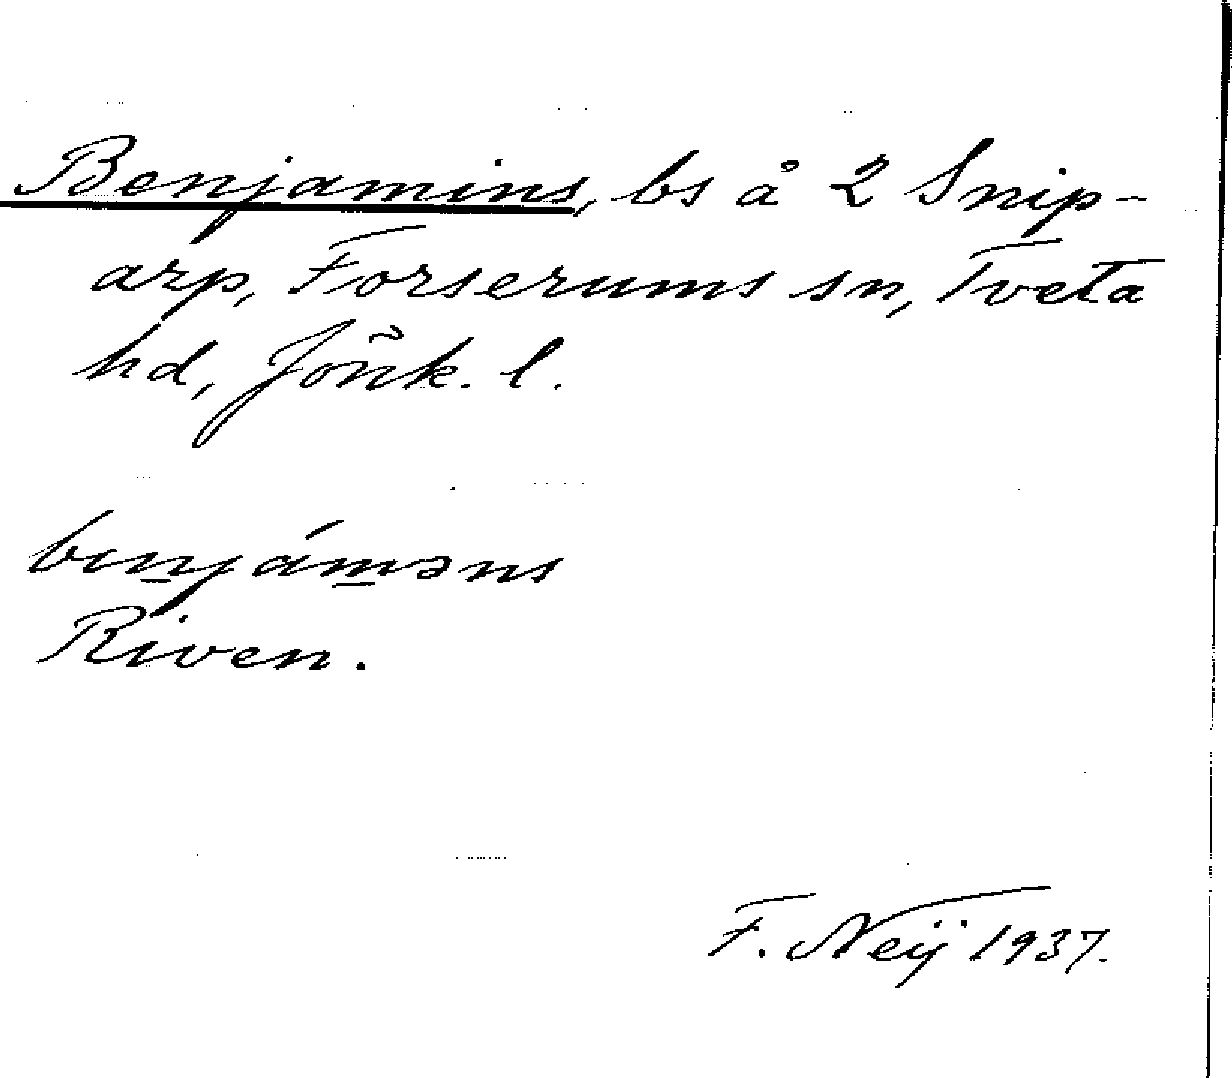 Benjamins, bs å 2 Snip-
arp, Forserums sn, Tveta
hd, Jönk. l.
benjáməns
Riven.
F. Neij 1937.